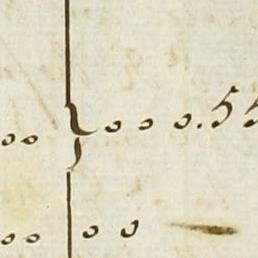 oo } o o o.55
oo o o